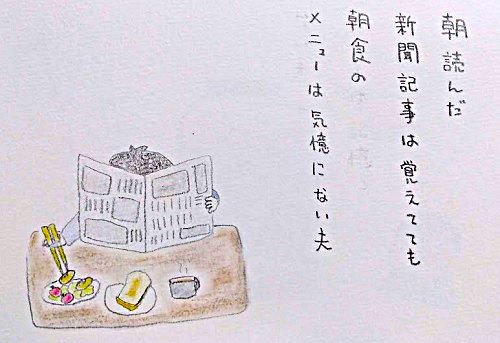 朝読んだ
新聞記事は覚えてても
朝食の
メニューは気憶にない夫